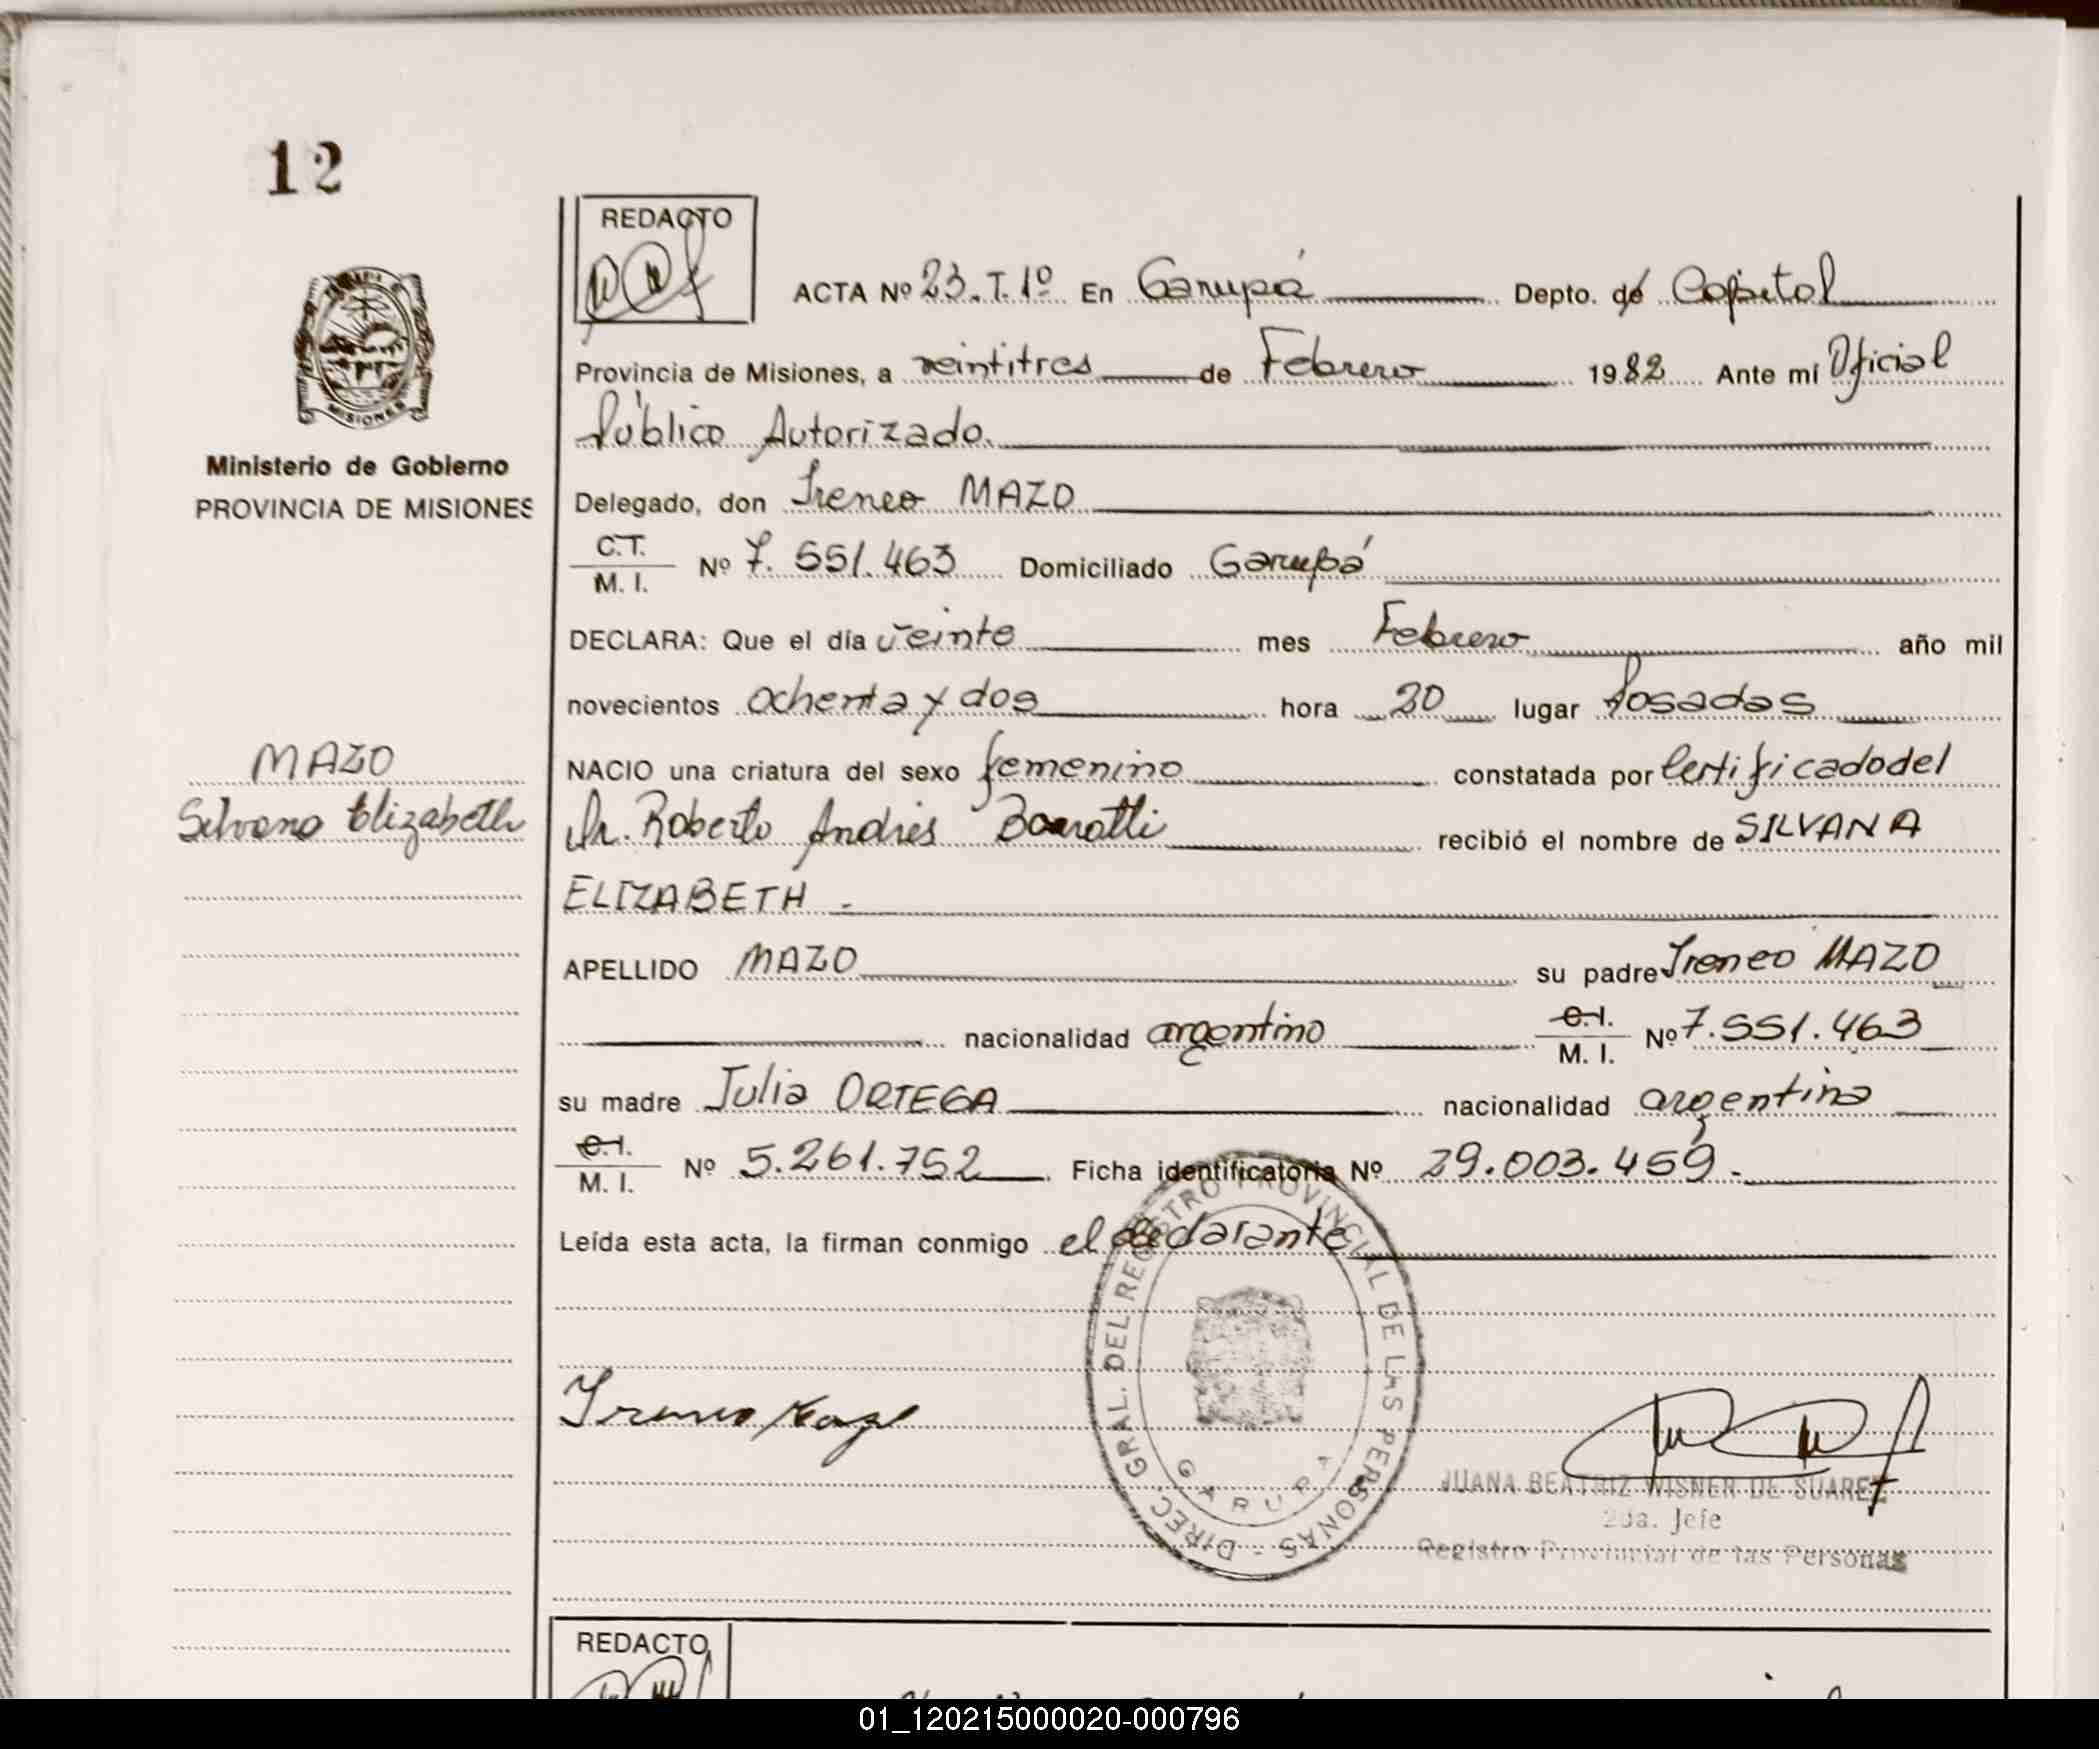 12
REDACTO
ACTA Nº 23. T. 1º En Garupá Depto. de Capital
MISIONES
Provincia de Misiones, a veintitres de Febrero 1982 Ante mí Oficial
Público Autorizado.
Ministerio de Gobierno
PROVINCIA DE MISIONES
Delegado, don Ireneo MAZO
C.T.
M. I. Nº 7.551.463 Domiciliado Garupá
DECLARA: Que el día veinte mes Febrero año mil
novecientos ochenta y dos hora 20 lugar Posadas
MAZO
NACIO una criatura del sexo femenino constatada por Certificado del
Silvana Elizabeth
Dr. Roberto Andrés recibió el nombre de SILVANA
ELIZABETH -
APELLIDO MAZO su padre Ireneo MAZO
nacionalidad argentino C.I.
M. I. Nº 7.551.463
su madre Julia ORTEGA nacionalidad argentina
C.I.
M. I. Nº 5.261.752 Ficha identificatoria Nº 29.003.459.-
Leída esta acta, la firman conmigo el declarante
DIREC. GRAL. DEL REGISTRO PROVINCIAL DE LAS PERSONAS -
GARUPA
Ireneo Mazo
JUANA BEATRIZ WISNER DE SUAREZ
2da. Jefe
Registro Provincial de las Personas
REDACTO
01_120215000020-000796